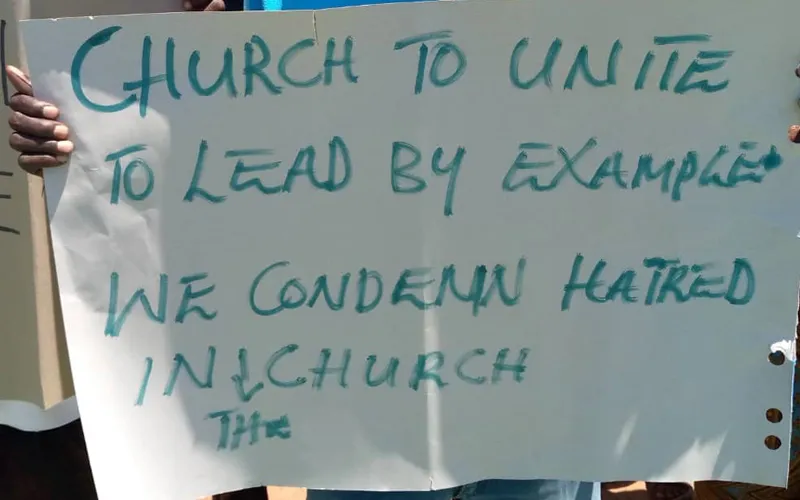 CHURCH TO UNITE
TO LEAD BY EXAMPLE
WE CONDEMN HATRED
IN ↓ CHURCH
THE